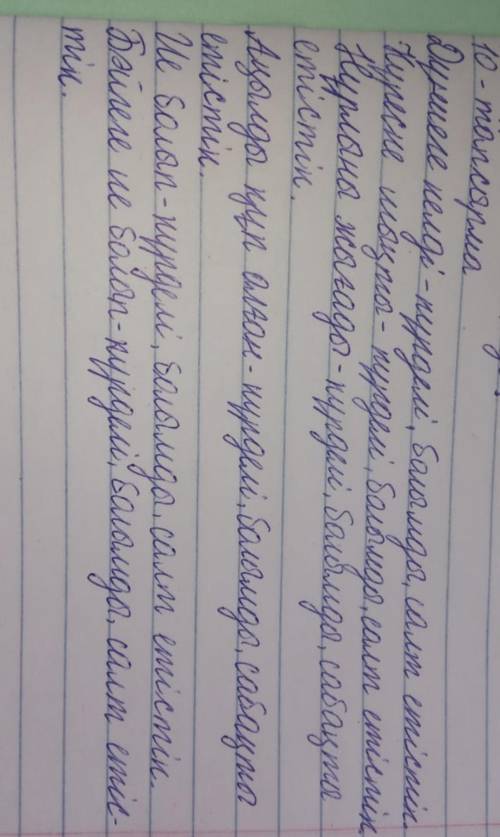 10-тапсырма
Дүниеге келді - күрделі, болымды, салт етістік.
Күреске шықты - күрделі, болымды, салт етістік.
Нұрлыны жығады - күрделі, болымды, сабақты
етістік.
Ақылды күш алған - күрделі, болымды, сабақты
етістік.
Ие болып - күрделі, болымды, салт етістік.
Бәйгеге ие болып - күрделі, болымды, салт етіс-
тік.